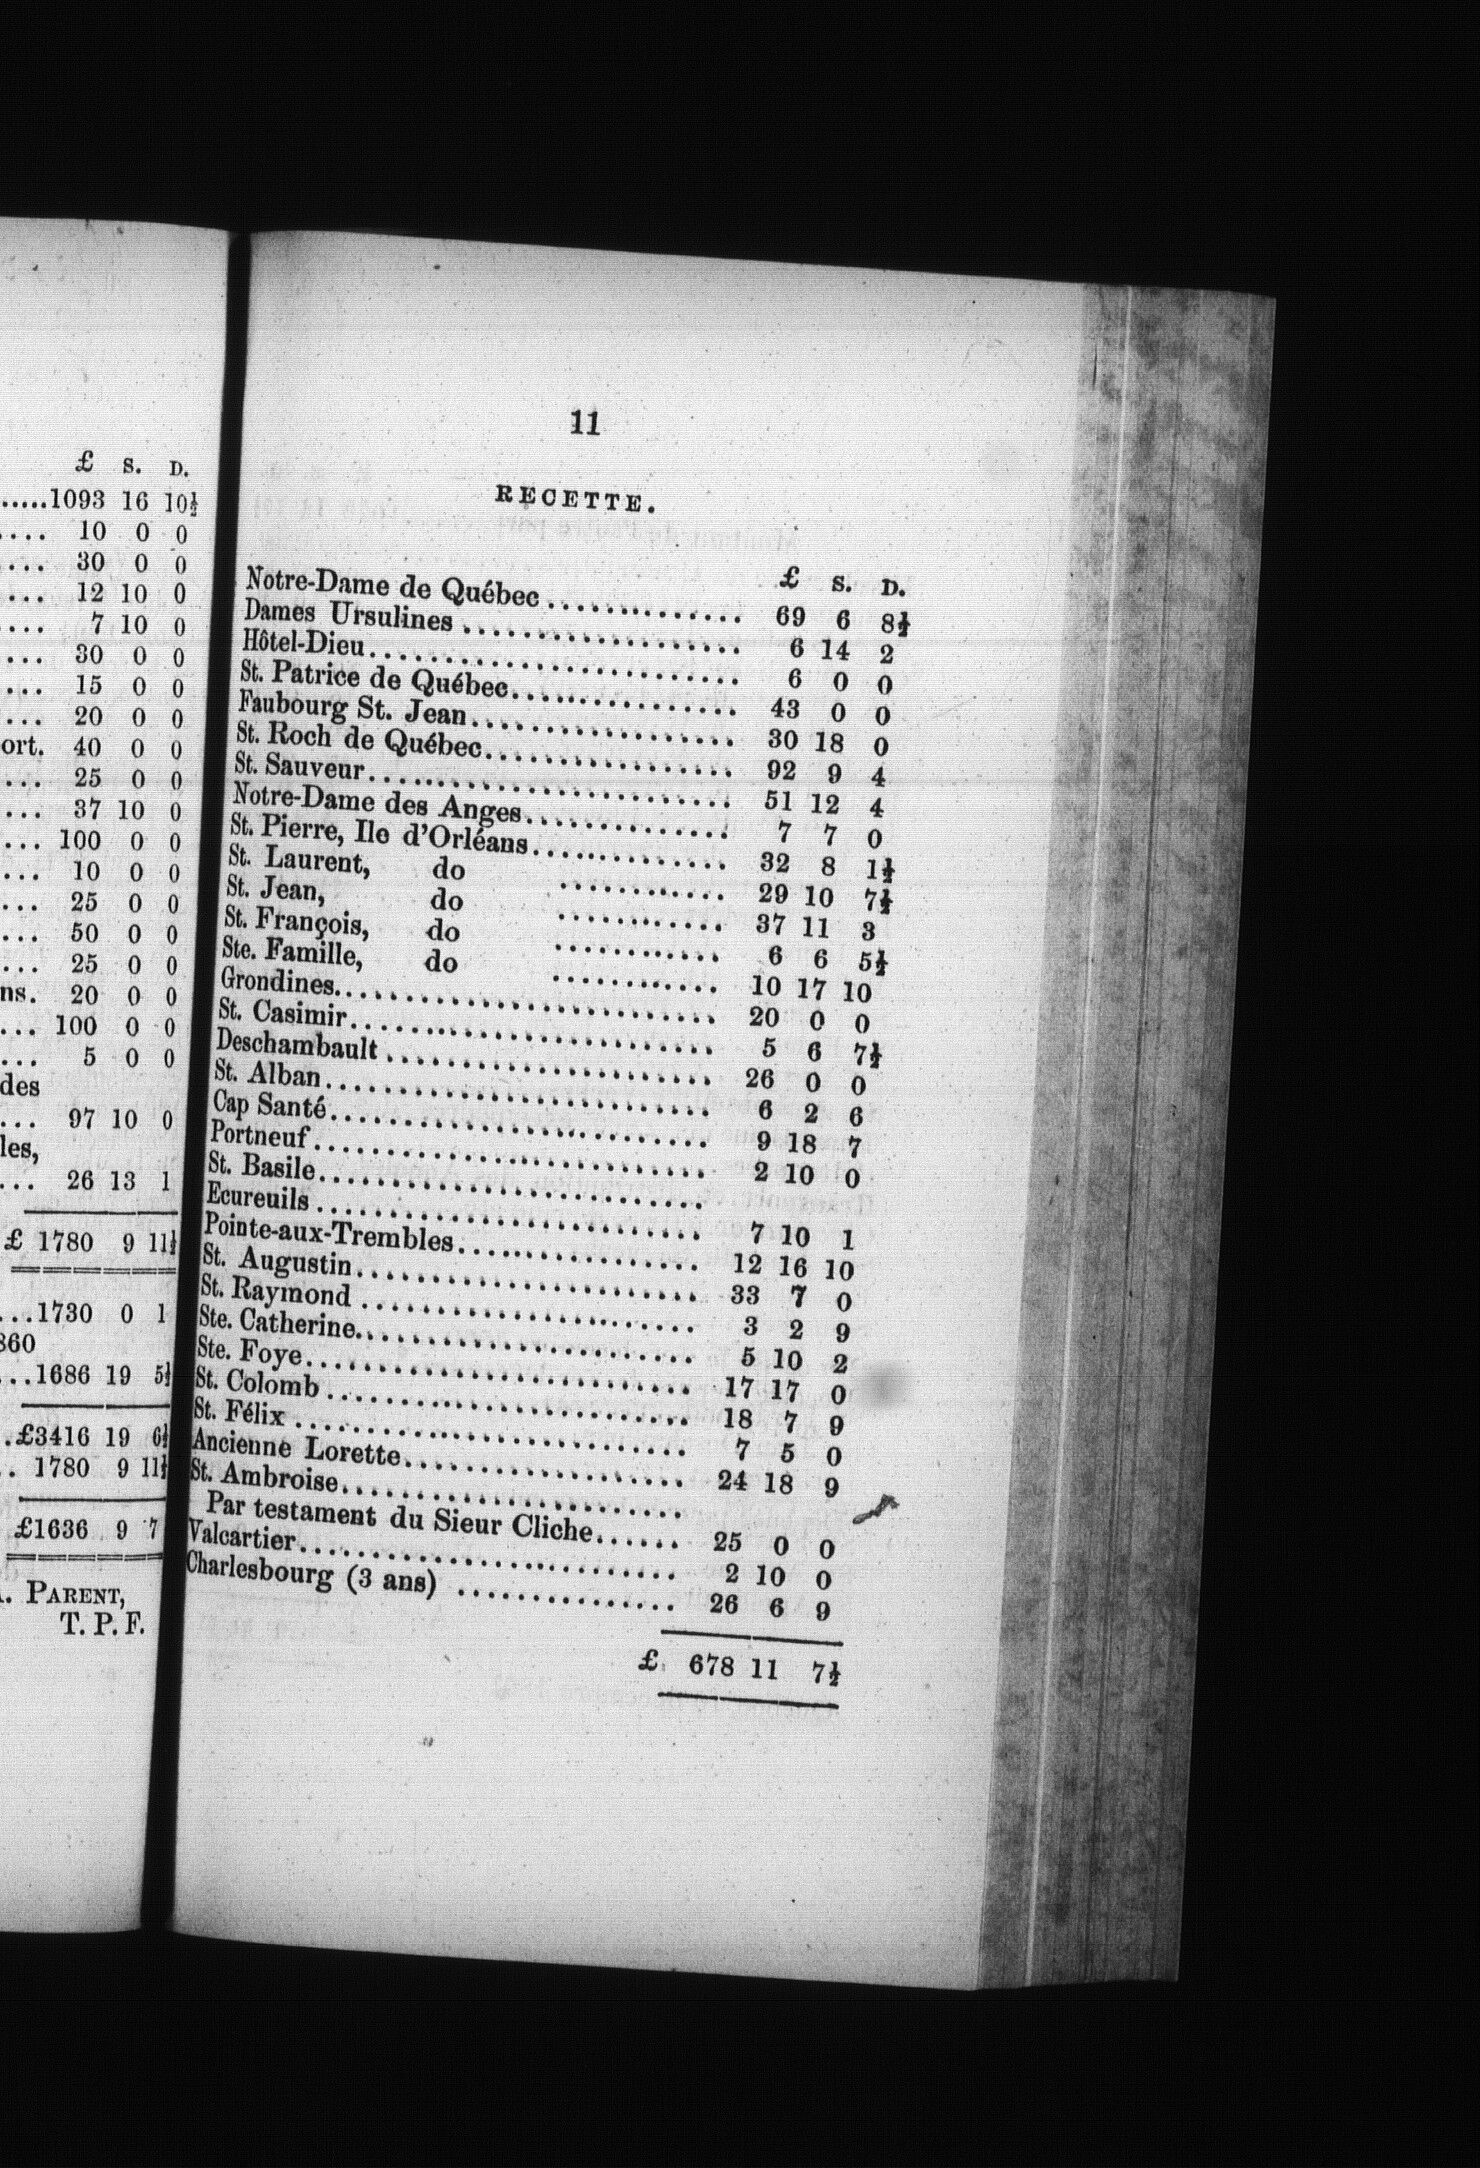 £ S. D.
.....1093 16 10½
.... 10 0 0
.... 30 0 0
.... 12 10 0
.... 7 10 0
... 30 0 0
... 15 0 0
... 20 0 0
ort. 40 0 0
... 25 0 0
... 37 10 0
... 100 0 0
... 10 0 0
... 25 0 0
... 50 0 0
... 25 0 0
ns. 20 0 0
... 100 0 0
... 5 0 0
des
... 97 10 0
les,
... 26 13 1
£ 1780 9 11½
...1730 0 1
860
...1686 19 5½
..£3416 19 6½
.. 1780 9 11½
£1636 9 7
. PARENT,
T. P. F.
11
RECETTE.
£ S. D.
Notre-Dame de Québec ............. 69 6 8½
Dames Ursulines ................... 6 14 2
Hôtel-Dieu......................... 6 0 0
St. Patrice de Québec............... 43 0 0
Faubourg St. Jean.................. 30 18 0
St. Roch de Québec................. 92 9 4
St. Sauveur........................ 51 12 4
Notre-Dame des Anges.............. 7 7 0
St. Pierre, Ile d'Orléans............. 32 8 1½
St. Laurent, do ........... 29 10 7½
St. Jean, do ........... 37 11 3
St. François, do ........... 6 6 5½
Ste. Famille, do ........... 10 17 10
Grondines.......................... 20 0 0
St. Casimir........................ 5 6 7½
Deschambault ...................... 26 0 0
St. Alban.......................... 6 2 6
Cap Santé.......................... 9 18 7
Portneuf........................... 2 10 0
St. Basile..........................
Ecureuils .......................... 7 10 1
Pointe-aux-Trembles................ 12 16 10
St. Augustin....................... 33 7 0
St. Raymond ....................... 3 2 9
Ste. Catherine....................... 5 10 2
Ste. Foye.......................... 17 17 0
St. Colomb ........................ 18 7 9
St. Félix .......................... 7 5 0
Ancienne Lorette................... 24 18 9
St. Ambroise.......................
Par testament du Sieur Cliche...... 25 0 0
Valcartier.......................... 2 10 0
Charlesbourg (3 ans) ............... 26 6 9
£ 678 11 7½